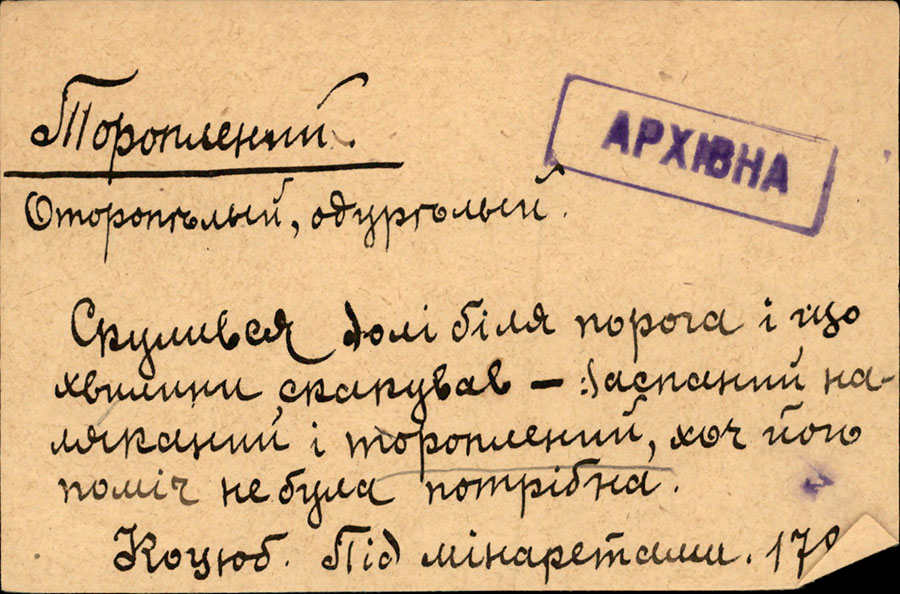 Тороплений.
АРХІВНА
Оторопѣлый, одурѣлый.
Скулився долі біля порога і що
хвилини скакував – заспаний на-
ляканий і тороплений, хоч його
поміч не була потрібна.
Коцюб. Під мінаретами. 17